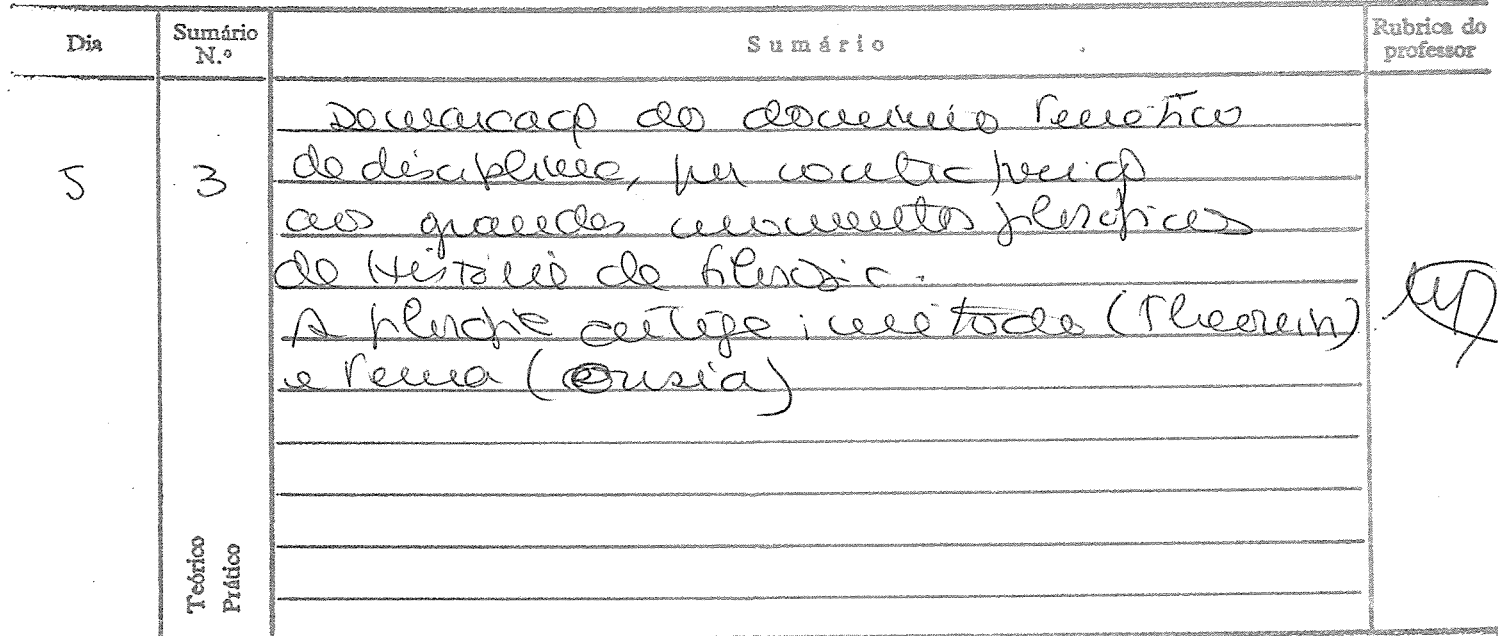 Dia
Sumário N.º
Sumário
Rubrica do professor
5
3
Demarcação do domínio temático
da disciplina, por contraposição
aos grandes momentos filosóficos
da História da filosofia.
A filosofia antiga: método (Theorein)
e tema (ousia)
Teórico
Prático